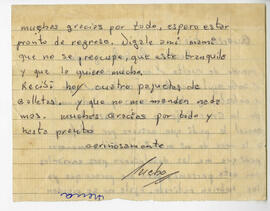 muchas gracias por todo, espero estar
pronto de regreso. Digale a mi mami
que no se preocupe, que este tranquilo
y que la quiero mucho.
Recibí hoy cuatro paquetes de
Galletas. y que no me manden nada
mas. muchas Gracias por todo y
hasta pronto
cariñosamente
Lucho